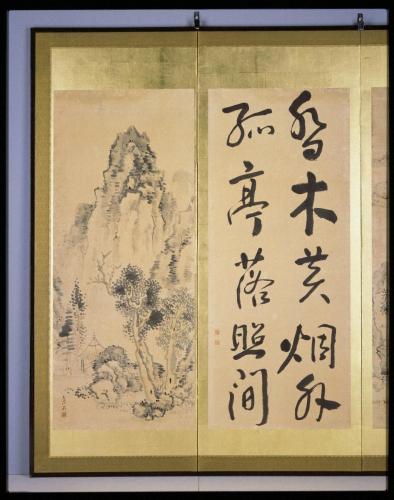 喬木烟外
孤亭落照間